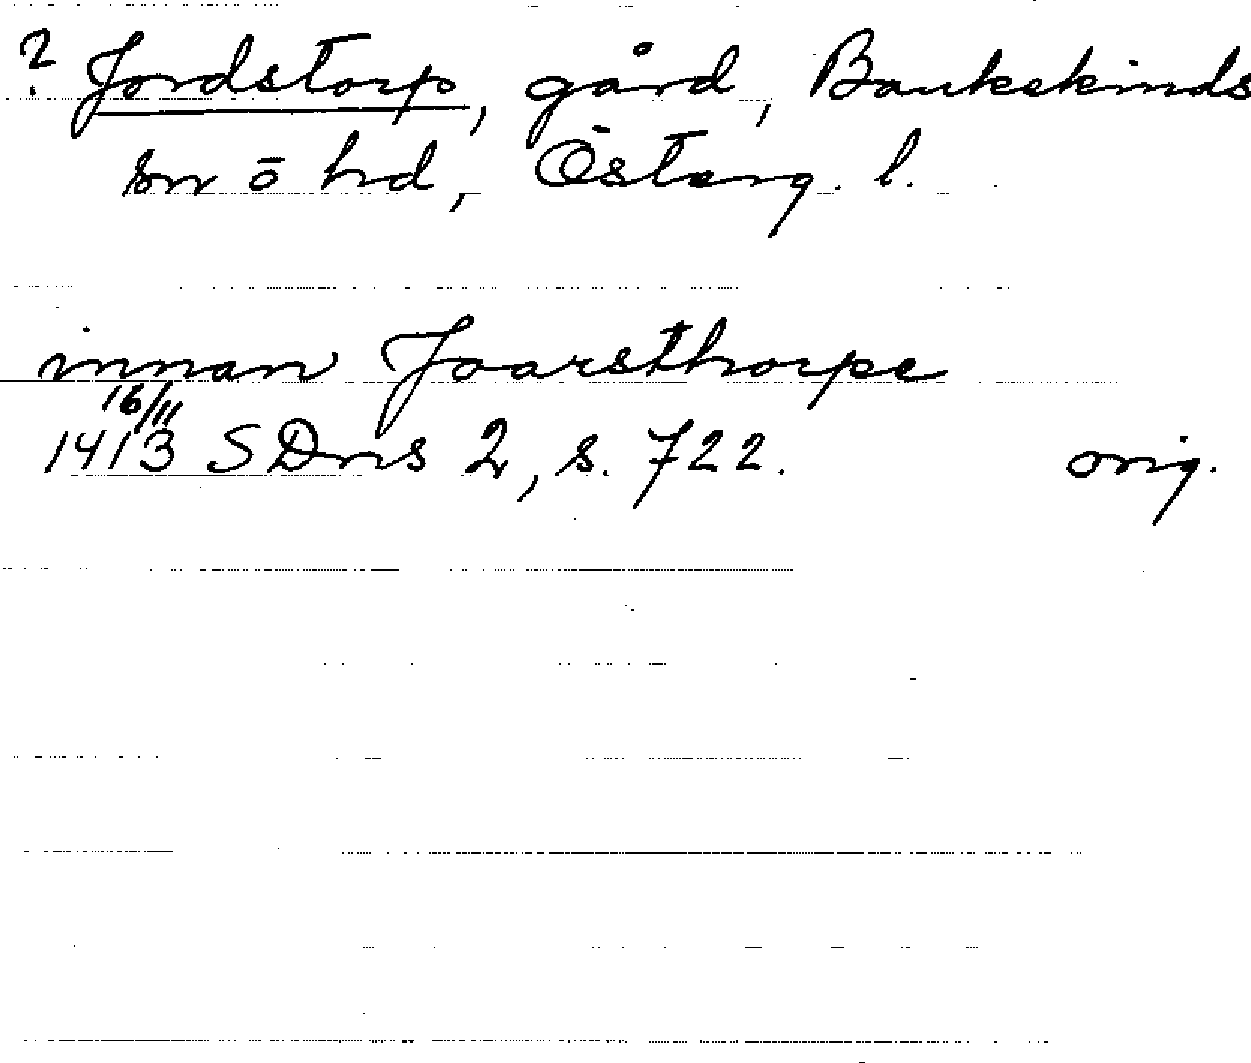 ? Jordstorp, gård, Bankekinds
sn ō hd, Österg. l.
innan Joarsthorpe
16/11
1413 SDns 2, s. 722. orig.